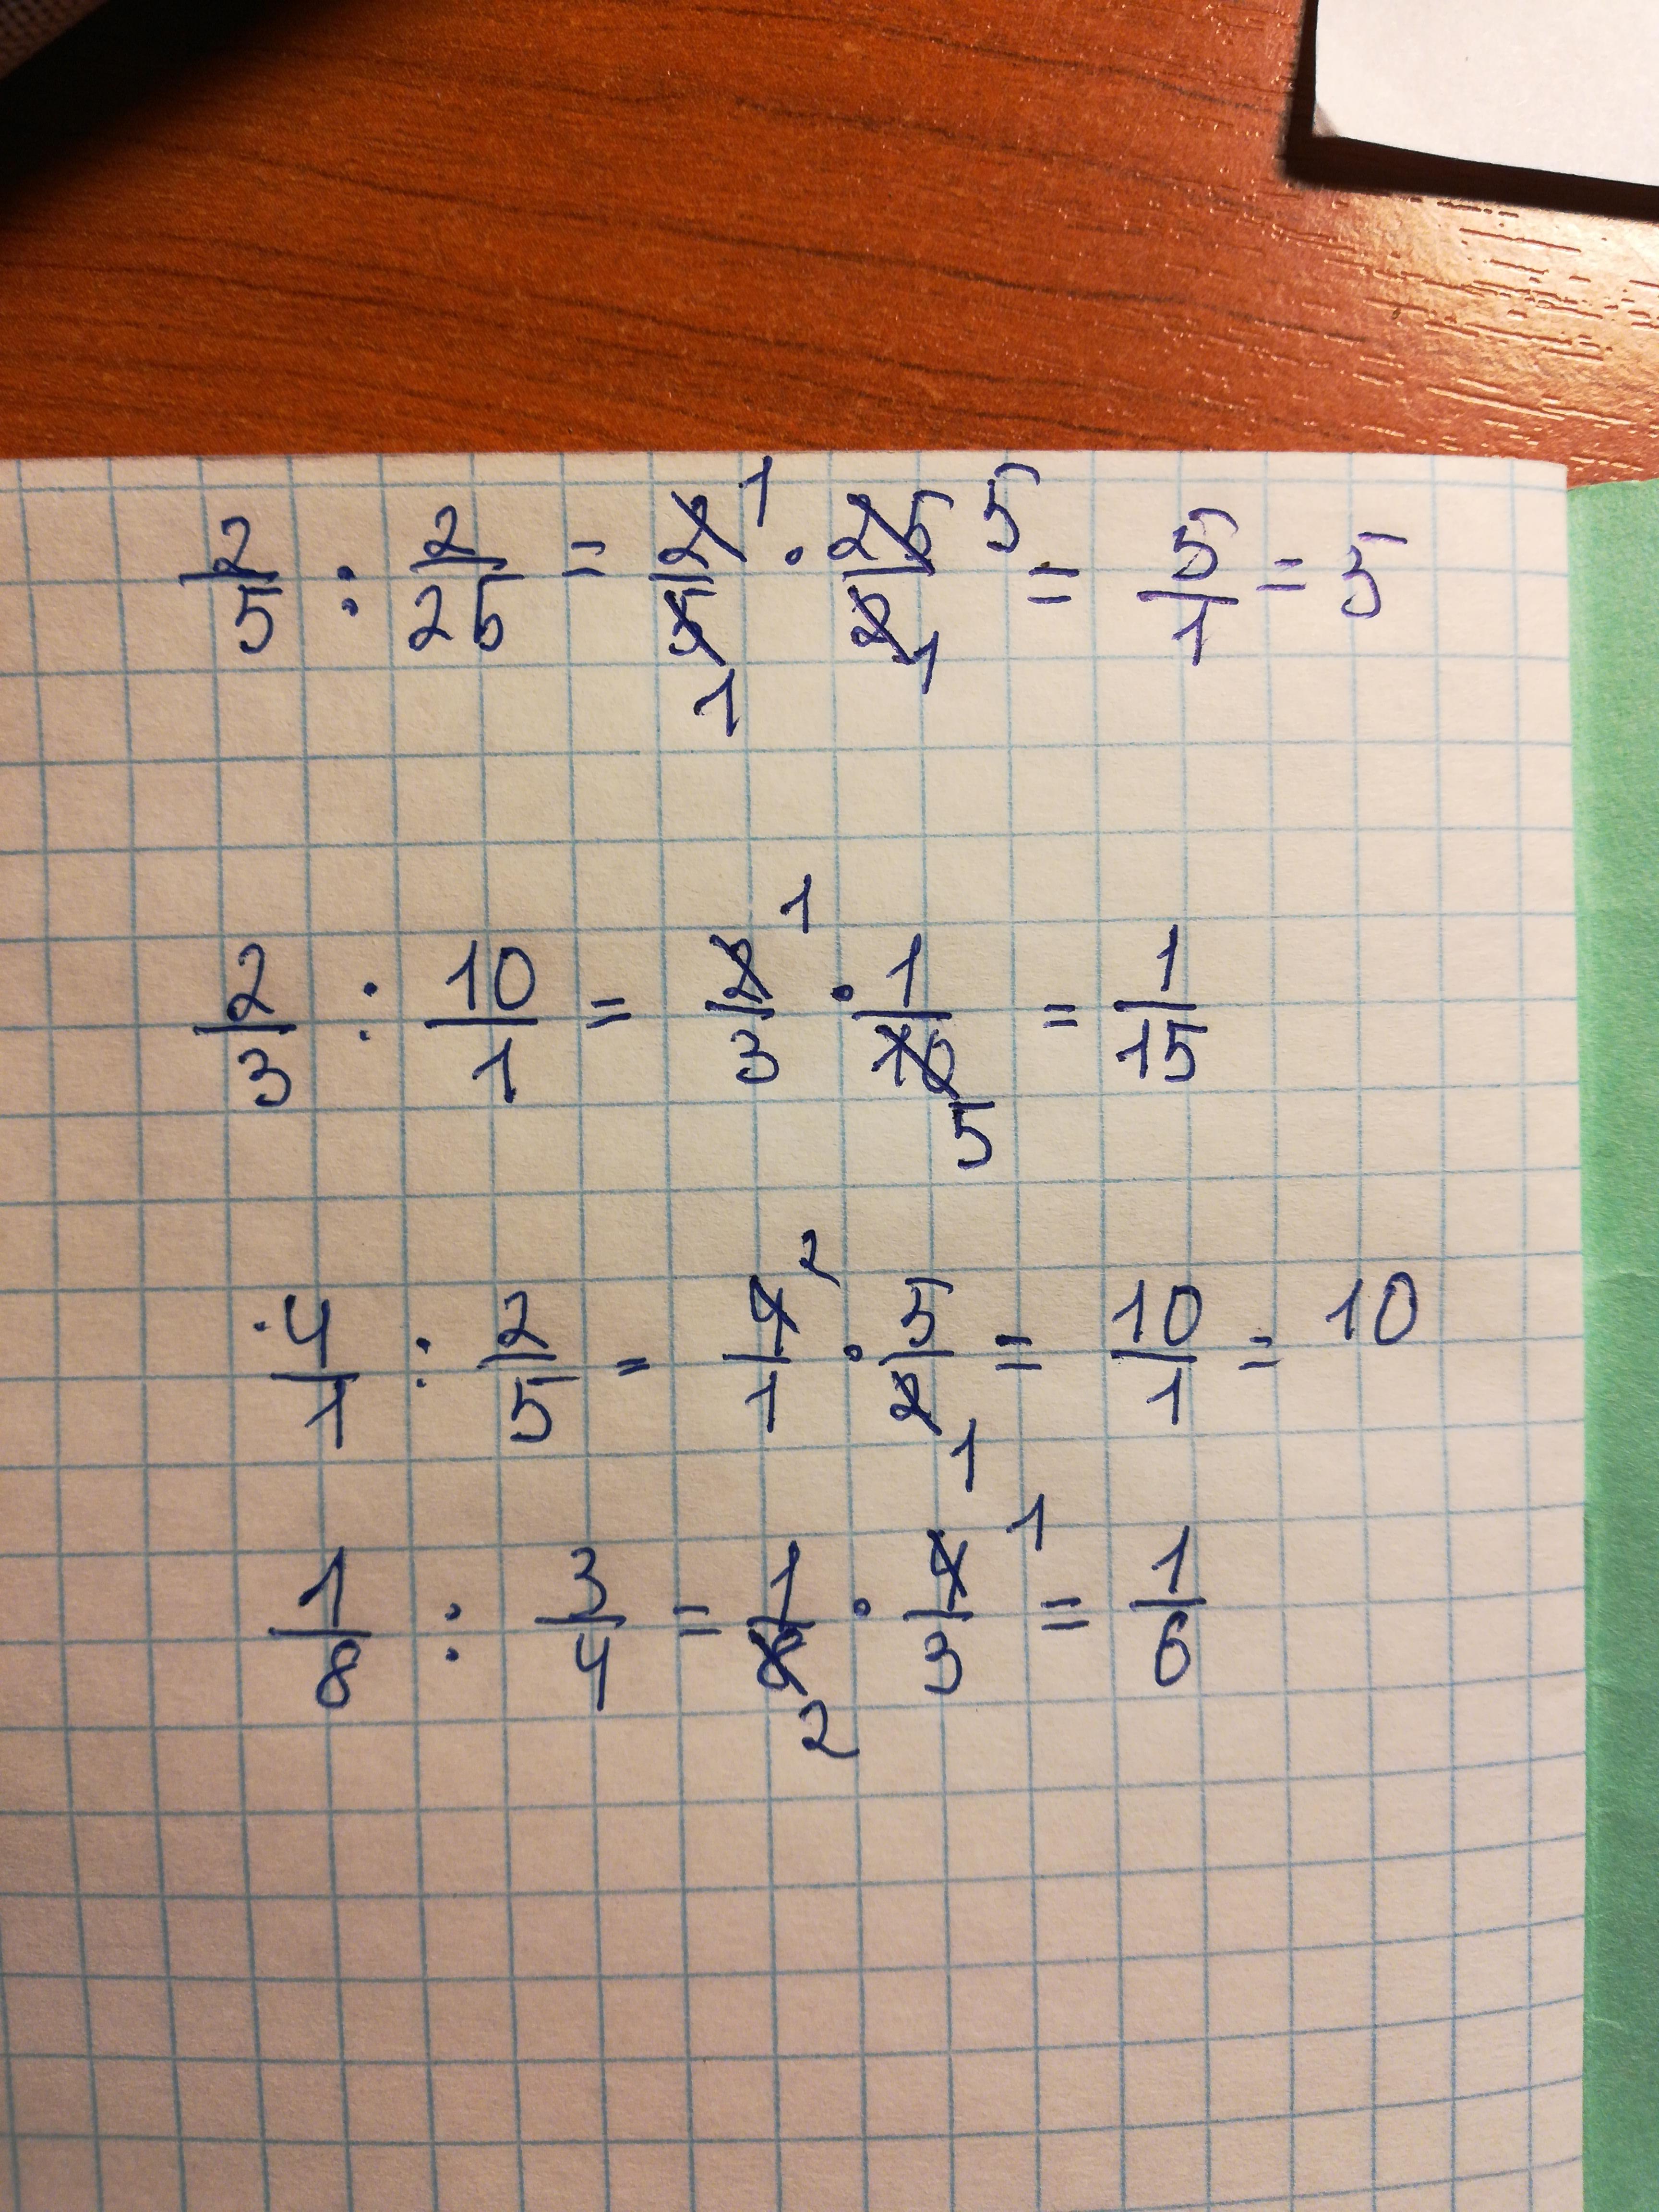 2/5 : 2/25 = 2/5 1/1 · 25/2 5/1 = 5/1 = 5
2/3 : 10/1 = 2/3 1 · 1/10 5 = 1/15
4/1 : 2/5 = 4/1 2 · 5/2 1 = 10/1 = 10
1/8 : 3/4 = 1/8 2 · 4/3 1 = 1/6